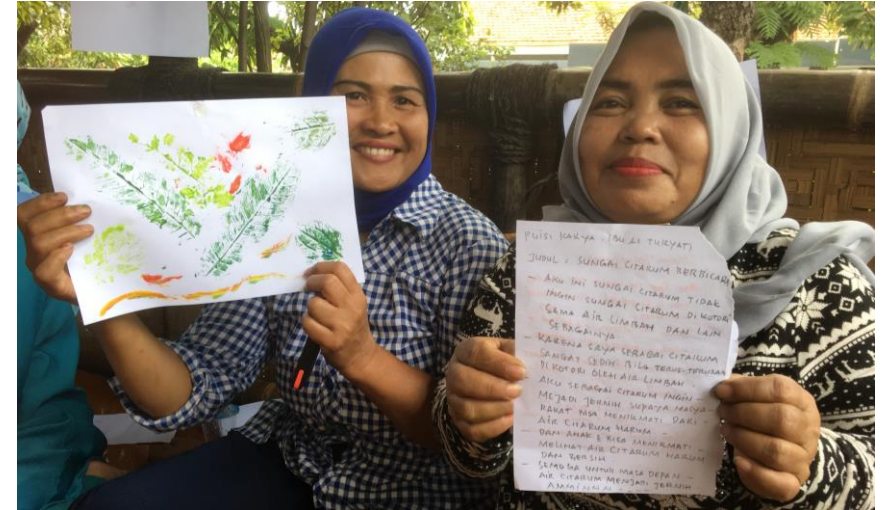 PUISI KARYA : (BU AI TURYATI)
JUDUL : SUNGAI CITARUM BERBICARA
- AKU INI SUNGAI CITARUM TIDAK
INGIN SUNGAI CITARUM DI KOTORI
SAMA AIR LIMBAH DAN LAIN
SEBAGAINYA.
- KARENA SAYA SEBAGAI CITARUM
SANGAT SEDIH BILA TERUS-TERUSAN
DI KOTORI OLEH AIR LIMBAH
- AKU SEBAGAI CITARUM INGIN -
MEJADI JERNIH SUPAYA MASYA-
RAKAT BISA MENIKMATI DARI -
AIR CITARUM HARUM -
- DAN ANAK & KITA MENIKMATI -
MELIHAT AIR CITARUM HARUM
DAN BERSIH
- SEMOGA UNTUK MASA DEPAN -
AIR CITARUM MENJADI JERNIH -
AMMINNN